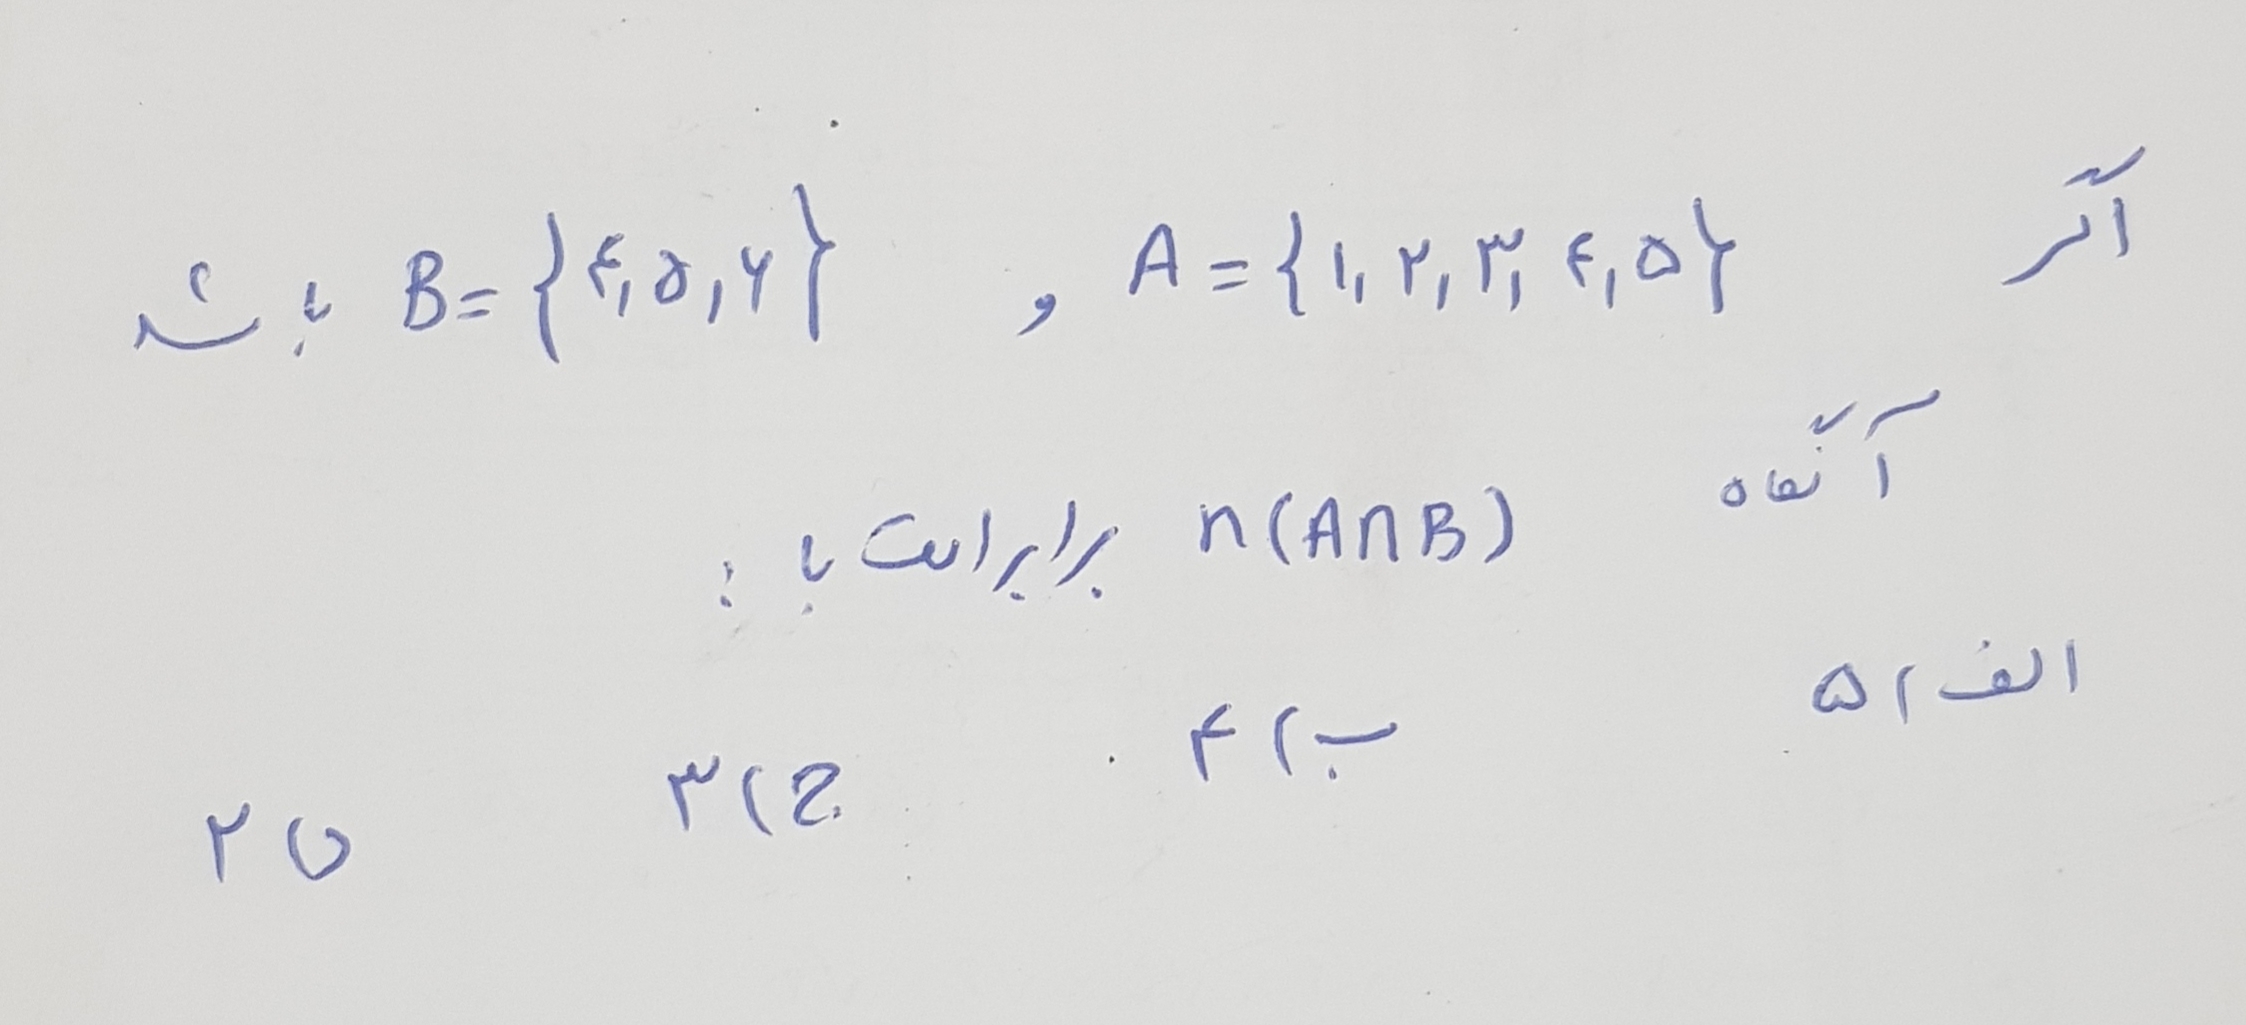 اگر A = {۱, ۲, ۳, ۴, ۵} و B = {۴, ۵, ۶} باشد
آنگاه n(A∩B) برابر است با :
الف) ۵ ب) ۴ ج) ۳ د) ۲